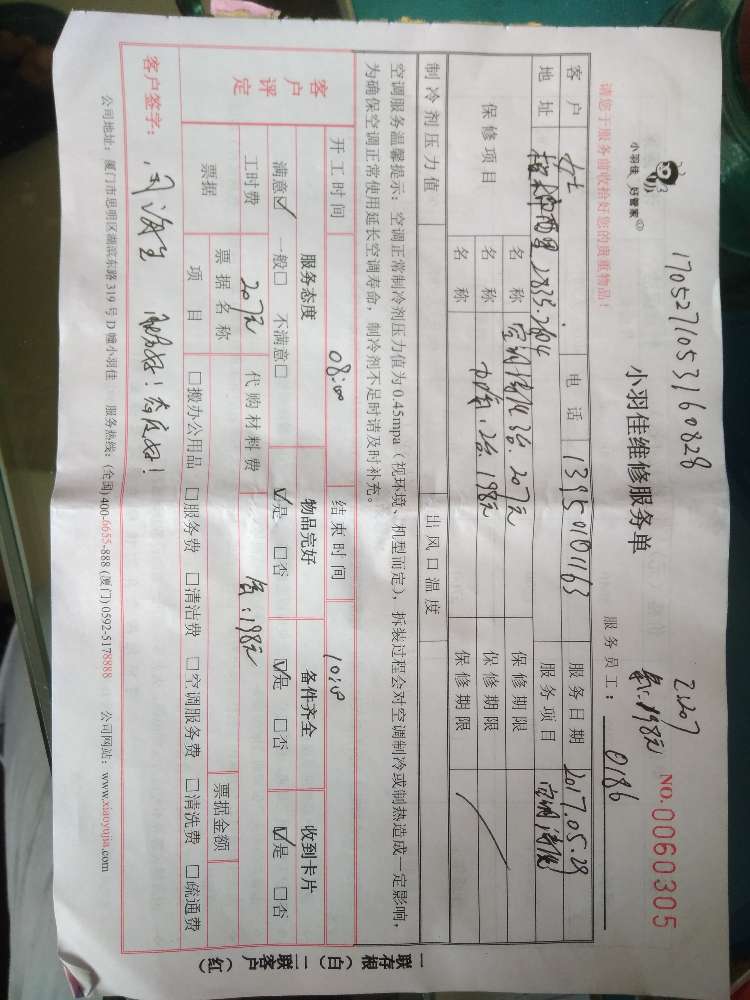 170527105316 0828
工:207
氣:198元
小羽佳 好管家
小羽佳维修服务单
NO.0060305
请您于服务前收拾好您的贵重物品!
服务员工: 0186
客户 女士 电话 13950101163 服务日期 2017.05.29
地址 2835.2604 服务项目 空调清洗
保修项目 名称 空调清洗3台.207元 保修期限
名称 加氟:2台.198元 保修期限
名称 保修期限
制冷剂压力值 出风口温度
空调服务温馨提示:空调正常制冷剂压力值为0.45mpa(视环境、机型而定),拆装过程会对空调制冷或制热造成一定影响,
为确保空调正常使用延长空调寿命,制冷剂不足时请及时补充。
开工时间 08:00 结束时间 10:00
客户评定 服务态度 物品完好 备件齐全 收到卡片
满意☑ 一般□ 不满意□ ☑是 □否 ☑是 □否 ☑是 □否
工时费 207元 代购材料费 氟:198元
票据 票据名称 票据金额
项目 □搬办公用品 □服务费 □清洁费 □空调服务费 □清洗费 □疏通费
客户签字: 服务好!态度好!
公司地址:厦门市思明区湖滨东路319号D幢小羽佳 服务热线:(全国)400-6655-888 (厦门)0592-5178888 公司网站:www.xiaoyujia.com
一联存根(白) 二联客户(红)